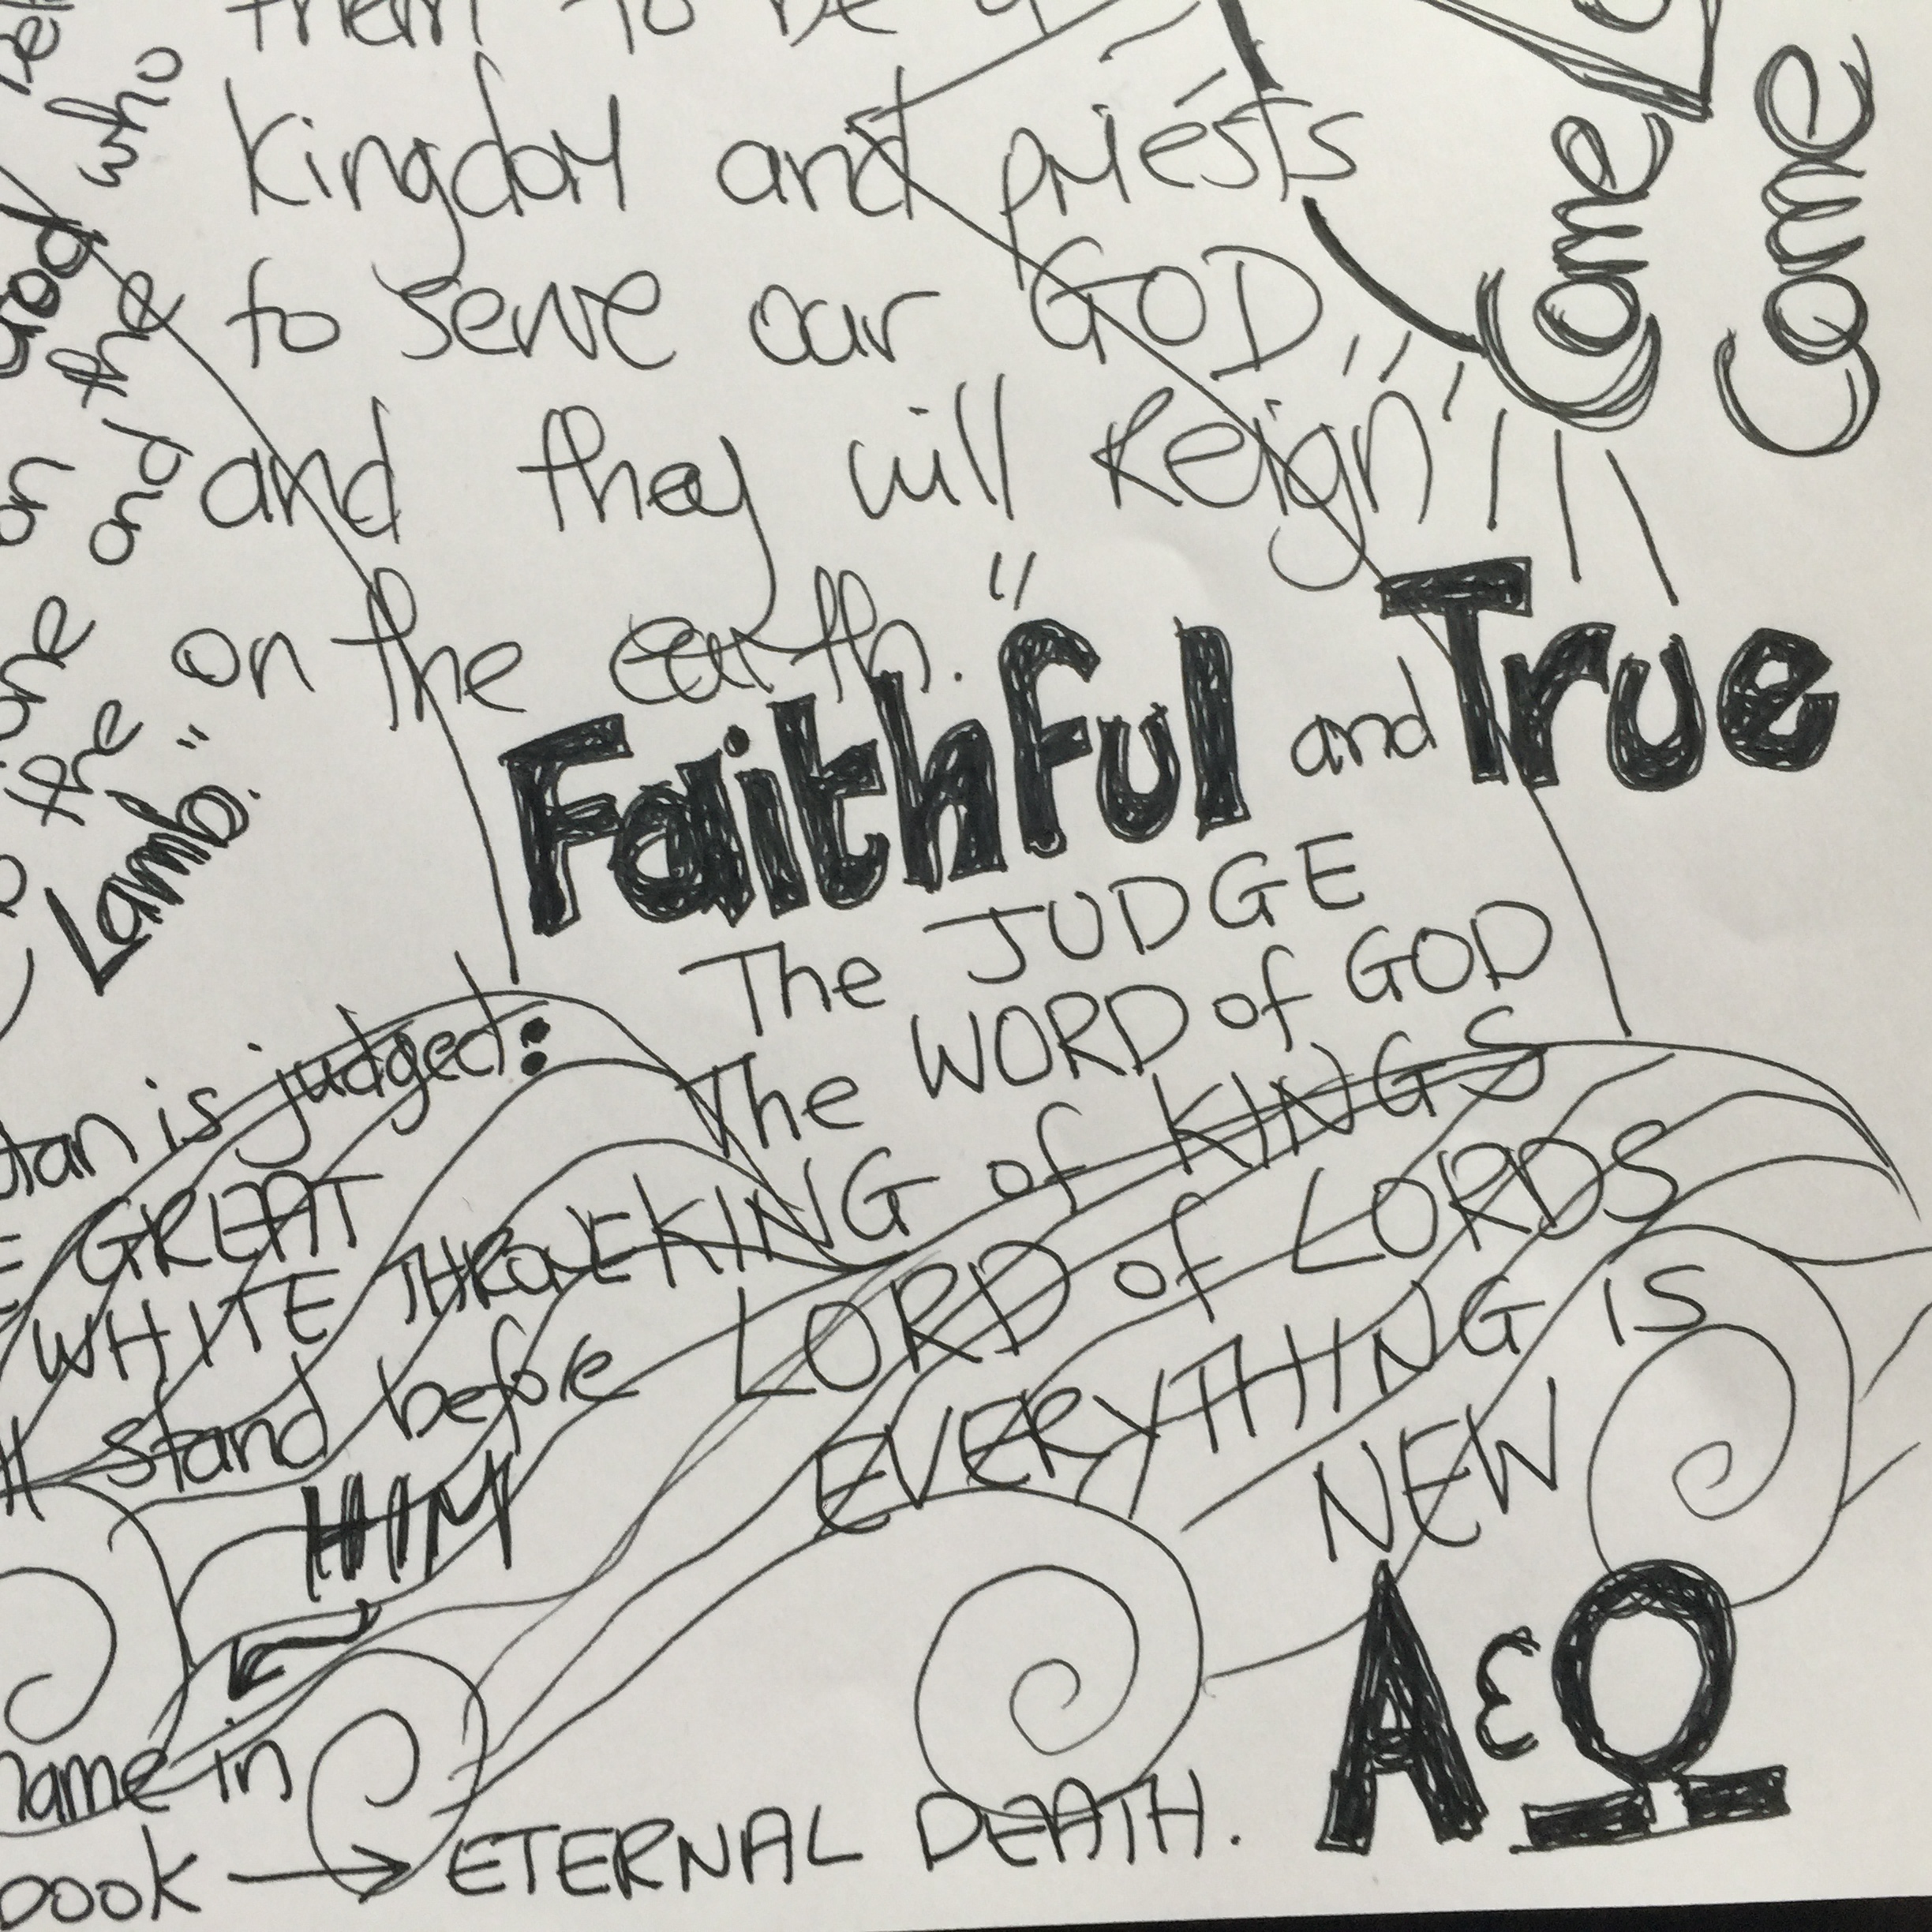 them to be a
kingdom and priests
to serve our GOD
and they will Reign
on the earth."
who
and the
on
the
Lamb."
Come
Come
Faithful and True
The JUDGE
The WORD of GOD
KING of KINGS
LORD of LORDS
EVERYTHING IS
NEW
A & Ω
is judged:
GREAT
WHITE THRONE
stand before
HIM
name in
book → ETERNAL DEATH.